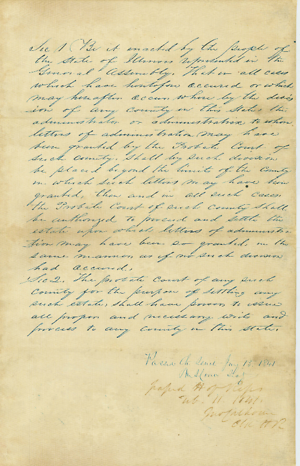 Sec 1. Be it enacted by the people of
the State of Illinois represented in the
General Assembly. That in all cases
which have heretofore accured or which
may hereafter accure where by the devis
ion of any county in this state the
administrator or administratrix to whom
letters of administration may have
been granted by the Probate Court of
such county. Shall by such division
be placed beyond the limits of the County
in which such letters may have been
granted, then and in all such cases
the Probate Court of such county shall
be authorized to proceed and settle the
estate upon which letters of administra
tion may have been so granted, in the
same manner as if no such division
had accured.
Sec 2. The probate Court of any such
county for the purpose of settling any
such estate, shall have power to issue
all proper and necessary writs and
process to any county in this state.